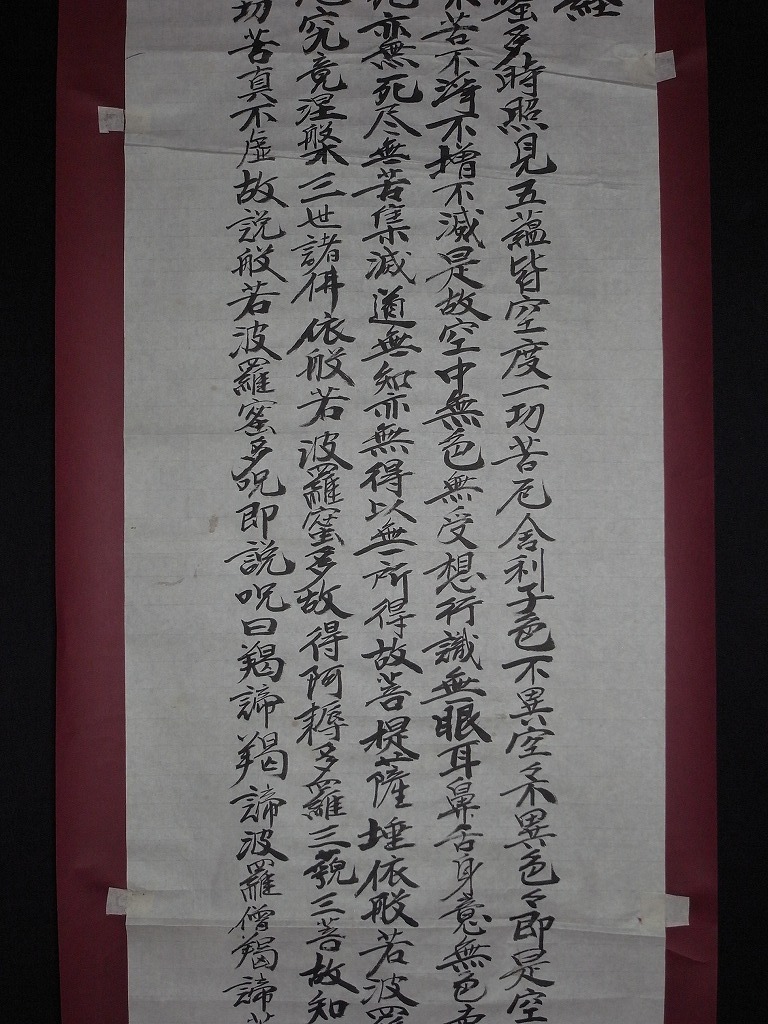 經
蜜多時照見五蘊皆空度一切苦厄舍利子色不異空々不異色々即是空
不増不減是故空中無色無受想行識無眼耳鼻舌身意無色
亦無死尽無苦集滅道無知亦無得以無所得故菩提薩埵依般若波羅
究竟涅槃三世諸佛依般若波羅蜜多故得阿耨多羅三藐三菩故知
切苦真不虚故説般若波羅蜜多呪即説呪曰羯諦羯諦波羅僧羯諦